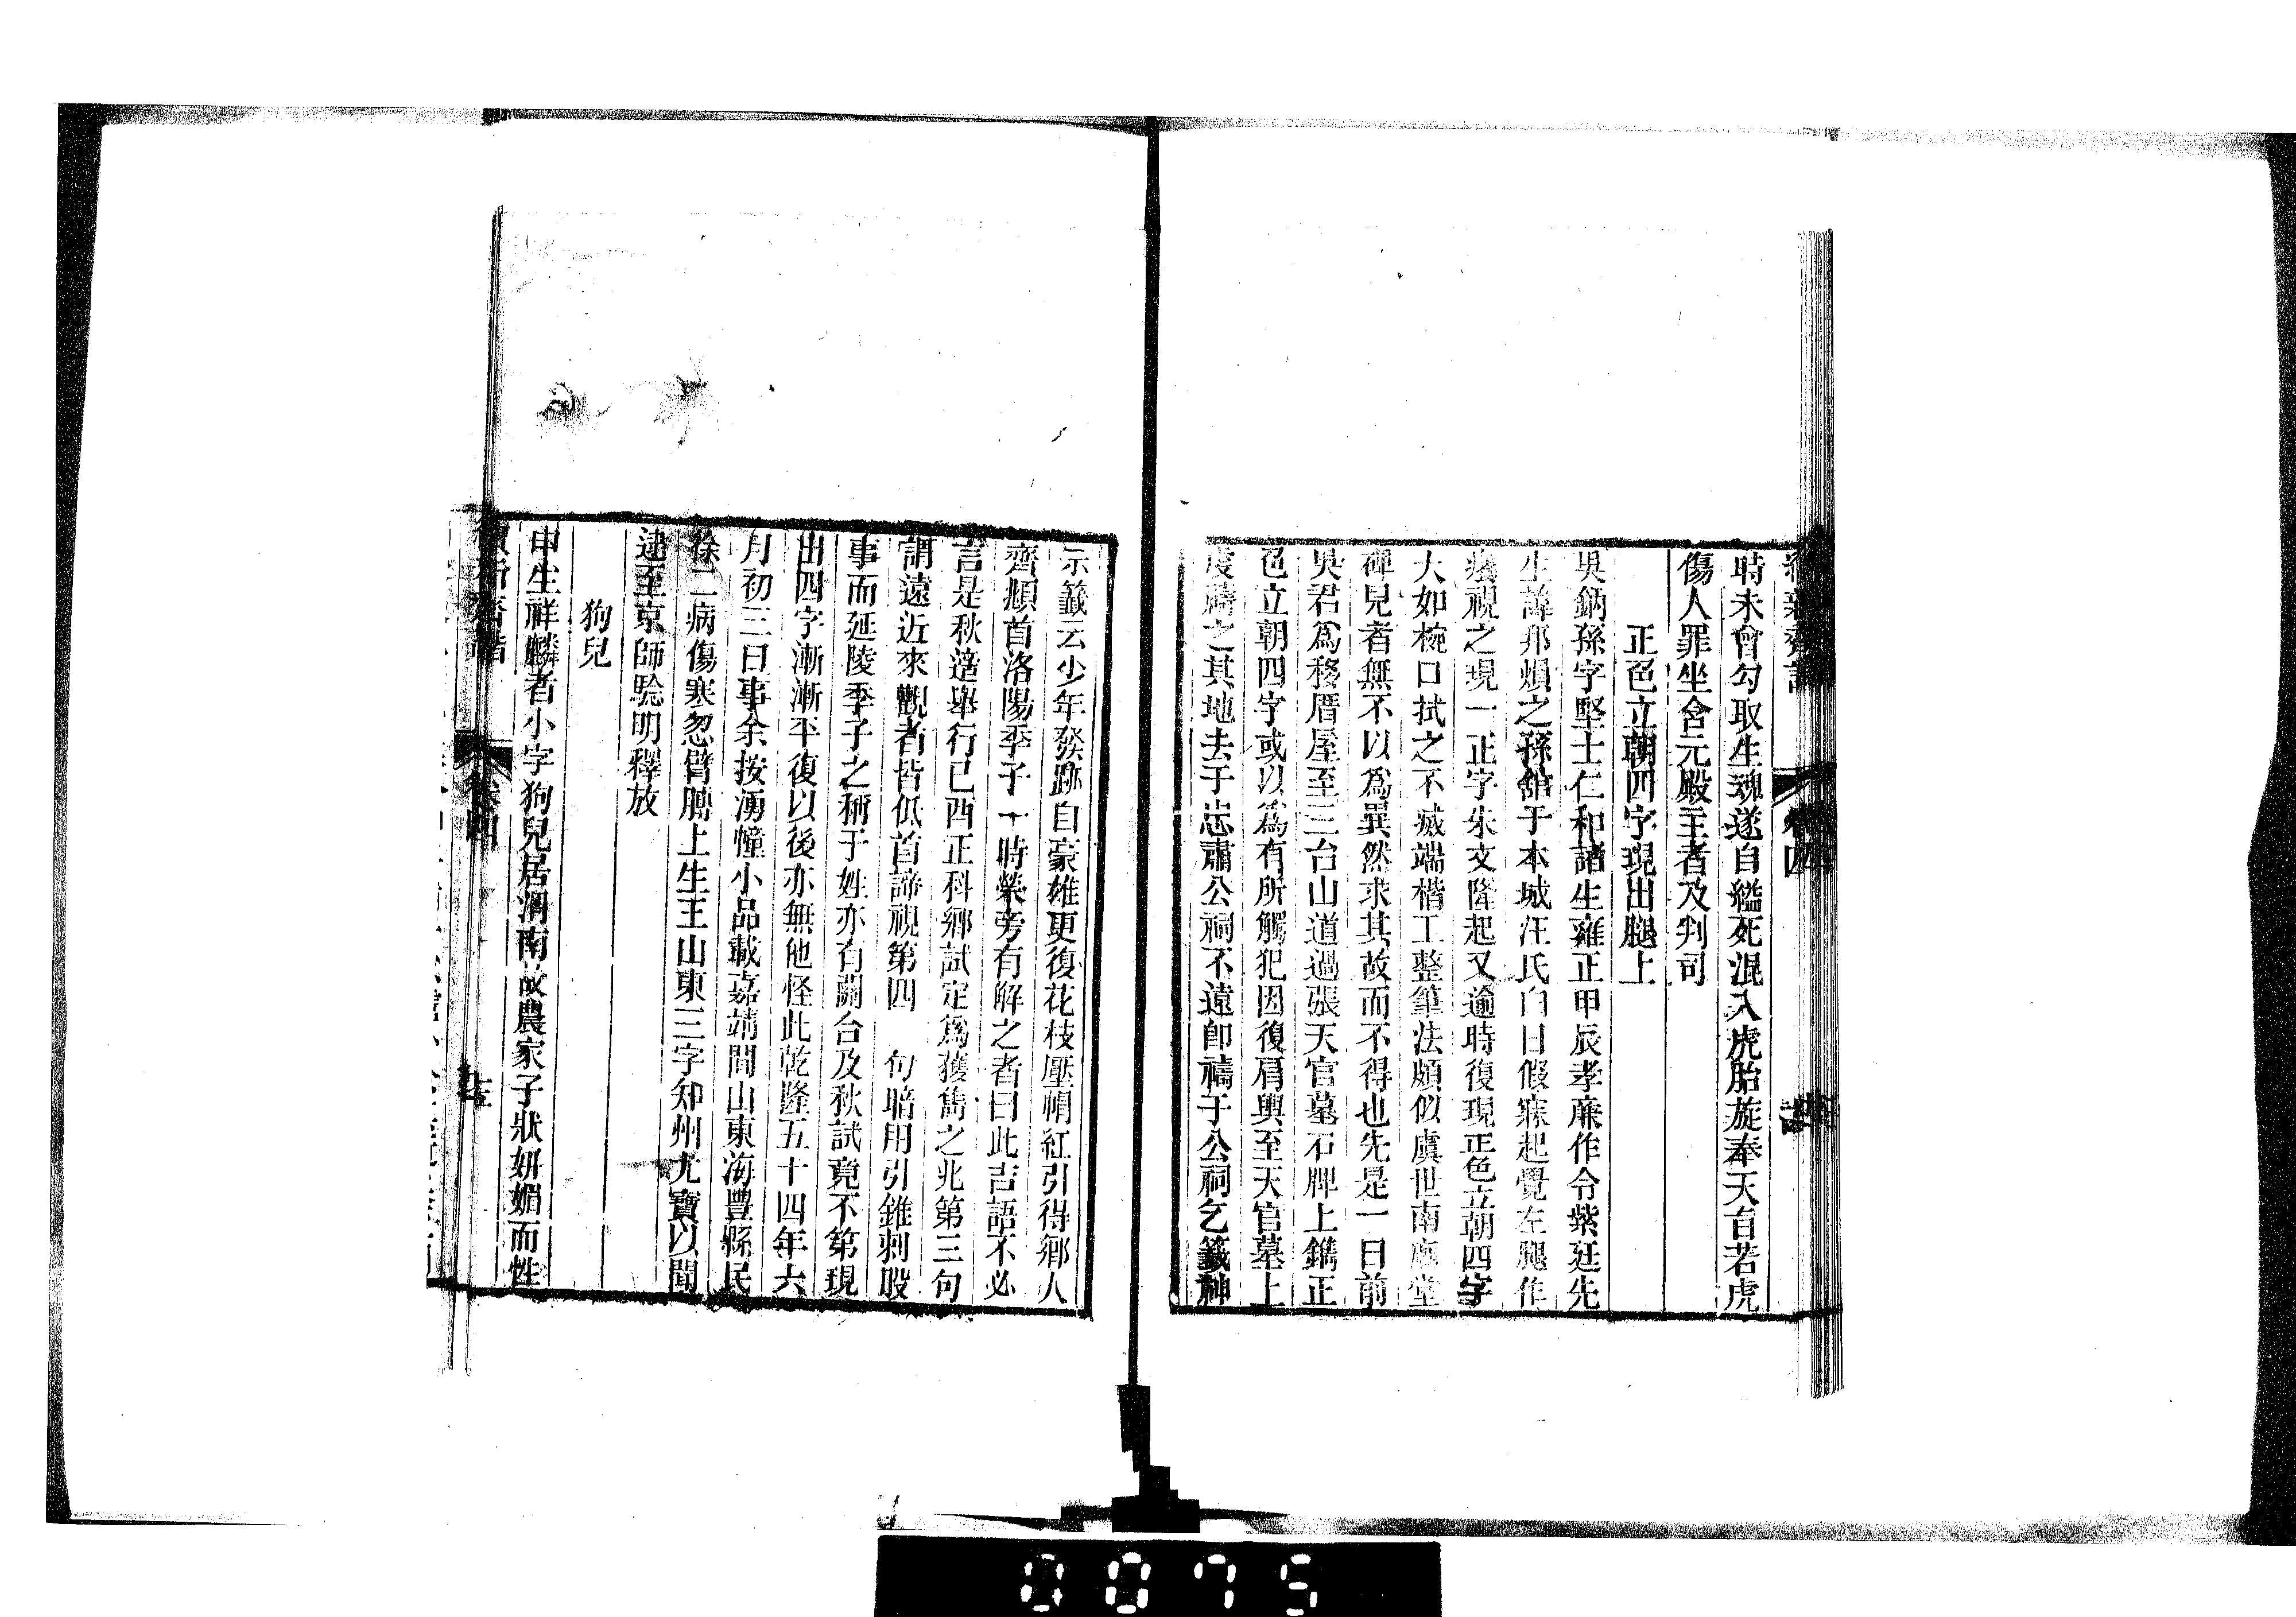 續新齊諧
卷四
時未曾勾取生魂遂自縊死混入虎胎旋奉天旨若虎
傷人罪坐含元殿主者及判司
正色立朝四字現出腿上
吳鈵孫字堅士仁和諸生雍正甲辰孝廉作令紫廷先
生諱邦熉之孫舘于本城汪氏白日假寐起覺左腿作
癢視之現一正字朱文隆起又逾時復現正色立朝四字
大如椀口拭之不滅端楷工整筆法頗似虞世南廟堂
碑見者無不以爲異然求其故而不得也先是一日前
吳君爲移厝屋至三台山道過張天官墓石牌上鐫正
色立朝四字或以爲有所觸犯因復肩輿至天官墓上
虔禱之其地去于忠肅公祠不遠卽禱于公祠乞籤神
示籤云少年發跡自豪雄更復花枝壓帽紅引得鄉人
齊頫首洛陽季子一時榮旁有解之者曰此吉語不必
言是秋適舉行己酉正科鄉試定爲獲雋之兆第三句
謂遠近來觀者皆低首諦視第四 句暗用引錐刺股
事而延陵季子之稱于姓亦有關合及秋試竟不第現
出四字漸漸平復以後亦無他怪此乾隆五十四年六
月初三日事余按湧幢小品載嘉靖間山東海豐縣民
徐二病傷寒忽臂膊上生王山東三字知州尤寶以聞
逮至京師騐明釋放
狗兒
申生祥麟者小字狗兒居渭南故農家子狀妍媚而性
續新齊諧
卷四